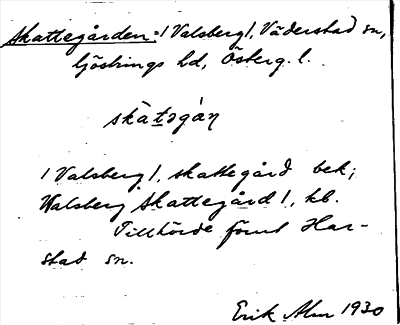 Skattegården: / Valsberg /, Väderstad sn,
Göstrings hd, Österg. l.
skàtəgán
/ Valsberg /, skattegård bek;
Walsberg Skattegård /, kb.
Tillhörde förut Har-
stad sn.
Erik Alm 1930